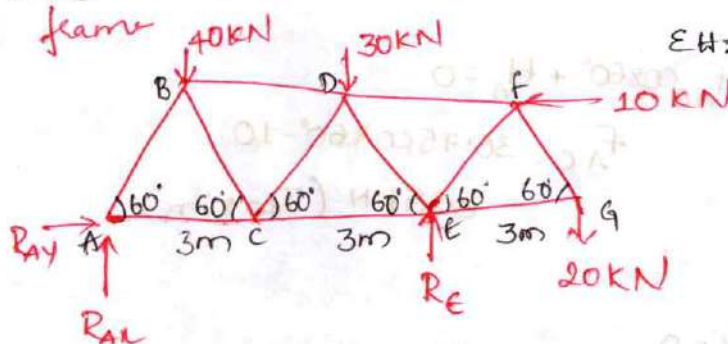 frame
40KN 30KN ΣH=
B D F 10 KN
60° 60° 60° 60° 60° 60°
R_AY A 3m C 3m E 3m G
R_AX R_E 20KN